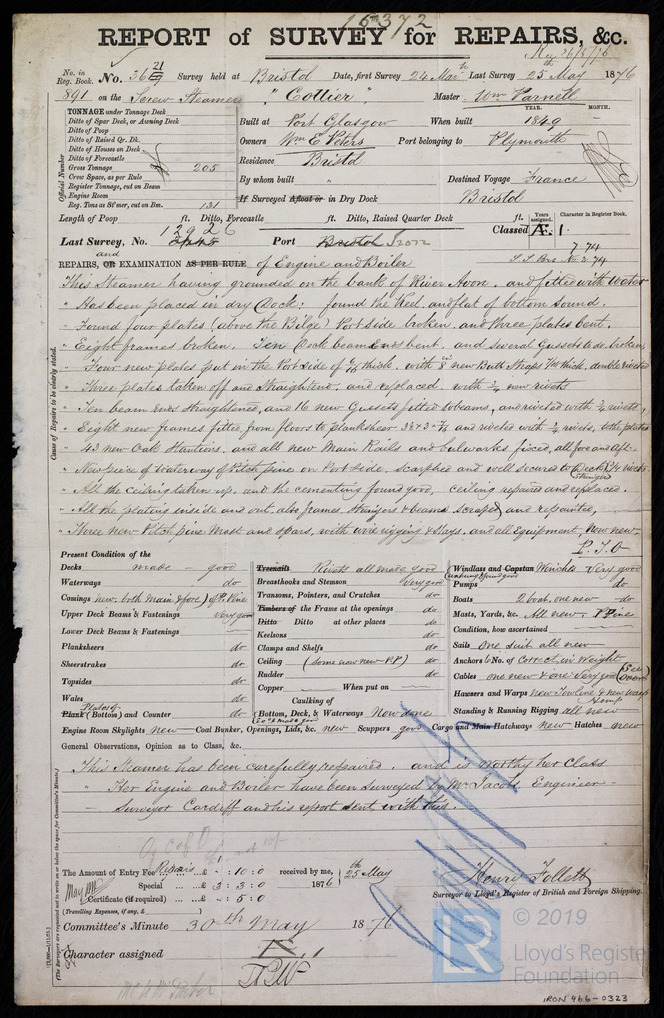 15372
REPORT of SURVEY for REPAIRS, &c.
No. in Reg. Book. No. 36 21 Survey held at Bristol Date, first Survey 24 Mar th Last Survey 25 May 1876
891 on the Screw Steamer "Collier" Master Wm Varnell
TONNAGE under Tonnage Deck
Ditto of Spar Deck, or Awning Deck
Ditto of Poop
Ditto of Raised Qr. Dk.
Ditto of Houses on Deck
Ditto of Forecastle
Gross Tonnage 205
Crew Space, as per Rule
Register Tonnage, cut on Beam
Engine Room
Reg. Tons as St'mer, cut on Bm. 131
Official Number
YEAR. MONTH.
Built at Port Glasgow When built 1849 -
Owners Wm E Peters Port belonging to Plymouth
Residence Bristol
By whom built " Destined Voyage France
If Surveyed Afloat or in Dry Dock Bristol
Length of Poop ft. Ditto, Forecastle ft. Ditto, Raised Quarter Deck ft.
Years assigned. Character in Register Book.
12926
Last Survey, No. Port Bristol Iron Classed A. 1.
7.74
and
REPAIRS, OR EXAMINATION AS PER RULE of Engine and Boiler S.S. Brs No 2.74
Cause of Repairs to be clearly stated.
This Steamer having grounded on the bank of River Avon. and fitted with water
" Has been placed in dry Dock; found the Keel, and flat of bottom sound.
" Found four plates (above the Bilge) Port side broken, and three plates bent.
" Eight frames broken. Ten Deck beam ends bent. and several Gussets to do broken,
" Four new plates put in the Port side of thick. with 8 new Butt Straps thick, double riveted
" Three plates taken off and straightened, and replaced with 3/4 new rivets
" Ten beam ends straightened, and 16 new Gussets fitted to beams, and riveted with 3/4 rivets,
" Eight new frames fitted from floors to planksheer and riveted with 3/4 rivets, to the plates
" 43 new Oak Stantions, and all new Main Rails and bulworks fixed, all fore and aft.
" New piece of waterway of Pitch pine on Port side, scarphed and well secured to Deck Stringer rivets.
" All the Ceiling taken up, and the cementing found good, ceiling repaired and replaced.
" All the plating inside and out, also frames Stringers & beams Scraped, and repainted,
" Three new Pitch pine Mast and spars, with wire rigging & Stays, and all Equipment, new new.
P.T.O
Present Condition of the
Decks made - good
Waterways do
Comings new. both main & fore) of P. Pine
Upper Deck Beams & Fastenings very good
Lower Deck Beams & Fastenings -
Planksheers do
Sheerstrakes do
Topsides do
Wales do
Plates of
Plank (Bottom) and Counter do
Treenails Rivets all made good
Breasthooks and Stemson Very good
Transoms, Pointers, and Crutches do
Timbers of the Frame at the openings do
Ditto Ditto at other places do
Keelsons do
Clamps and Shelfs do
Ceiling (some now new P.P) do
Rudder do
Copper - When put on -
Caulking of
Bottom, Deck, & Waterways Now done
Windlass and Capstan Winches Very good
Pumps do
Boats 2 boat, one new do
Masts, Yards, &c. All new. P Pine
Condition, how ascertained -
Sails One suit all new
Anchors to No. of Correct in Weight
Cables one new & one very good (See over)
Hawsers and Warps New Towline & new warp Hemp
Standing & Running Rigging all new
Engine Room Skylights new Coal Bunker, Openings, Lids, &c. new Scuppers good Cargo and Main Hatchways new Hatches new
General Observations, Opinion as to Class, &c.
This Steamer has been carefully repaired. and is worthy her Class
" Her Engine and Boiler have been Surveyed by Mr Jacob Engineer
Surveyor Cardiff and his report sent with this.
The Amount of Entry Fee Repairs ... £ - : 10 : 0 received by me,
Special ... £ 3 : 3 : 0 1876 25th May
Certificate (if required) ... £ - : 5 : 0
(Travelling Expenses, if any, £ )
Henry Follett
Surveyor to Lloyd's Register of British and Foreign Shipping.
Committee's Minute 30th May 1876
Character assigned A. 1
© 2019
LR
Lloyd's Register
Foundation
IRON 466-0323